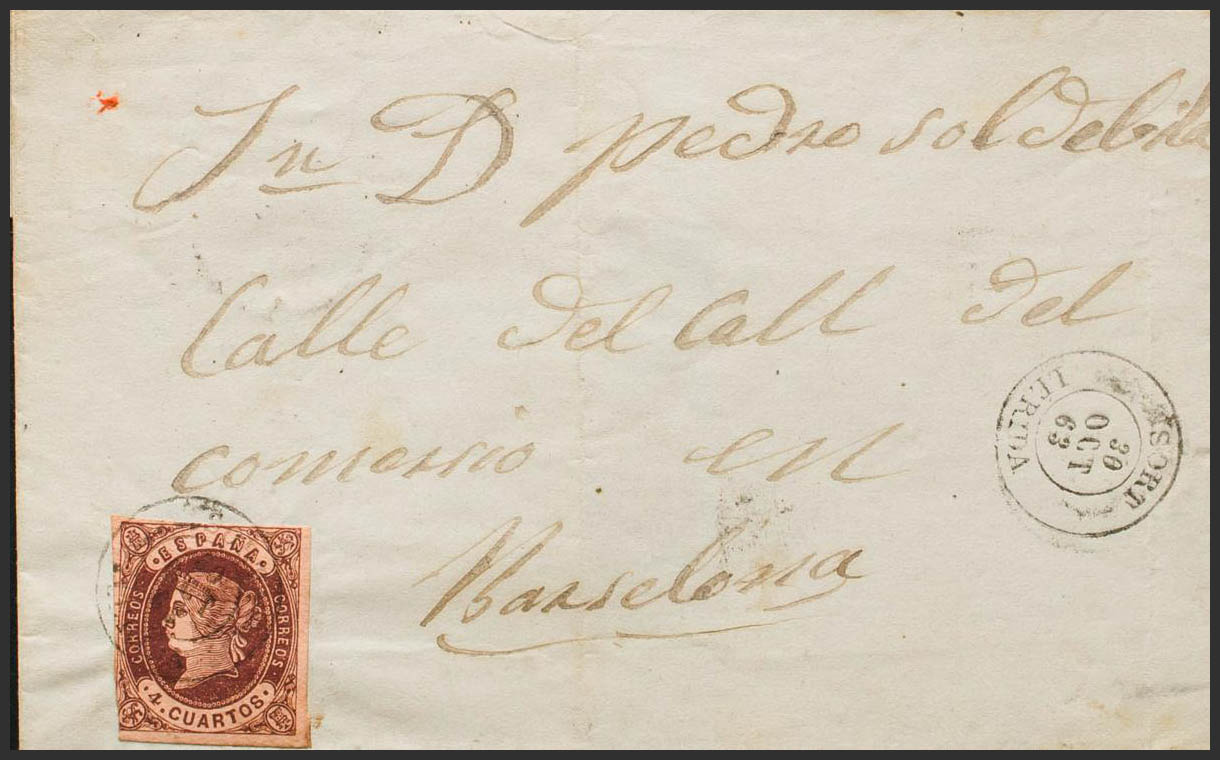 Sn D pedro soldebila
Calle del Call del
comersio en
Barselona
SORT
30
OCT
63
LERIDA
ESPAÑA
CORREOS
CORREOS
4. CUARTOS